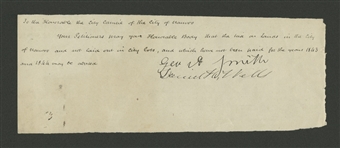 To the Honorable the City Council of the City of
Your Petitioners pray your Honorable Body that the tax on lands in the City
of and not laid out in city lots, and which have not been paid for the years 1865
and 1866 may be
Geo A Smith